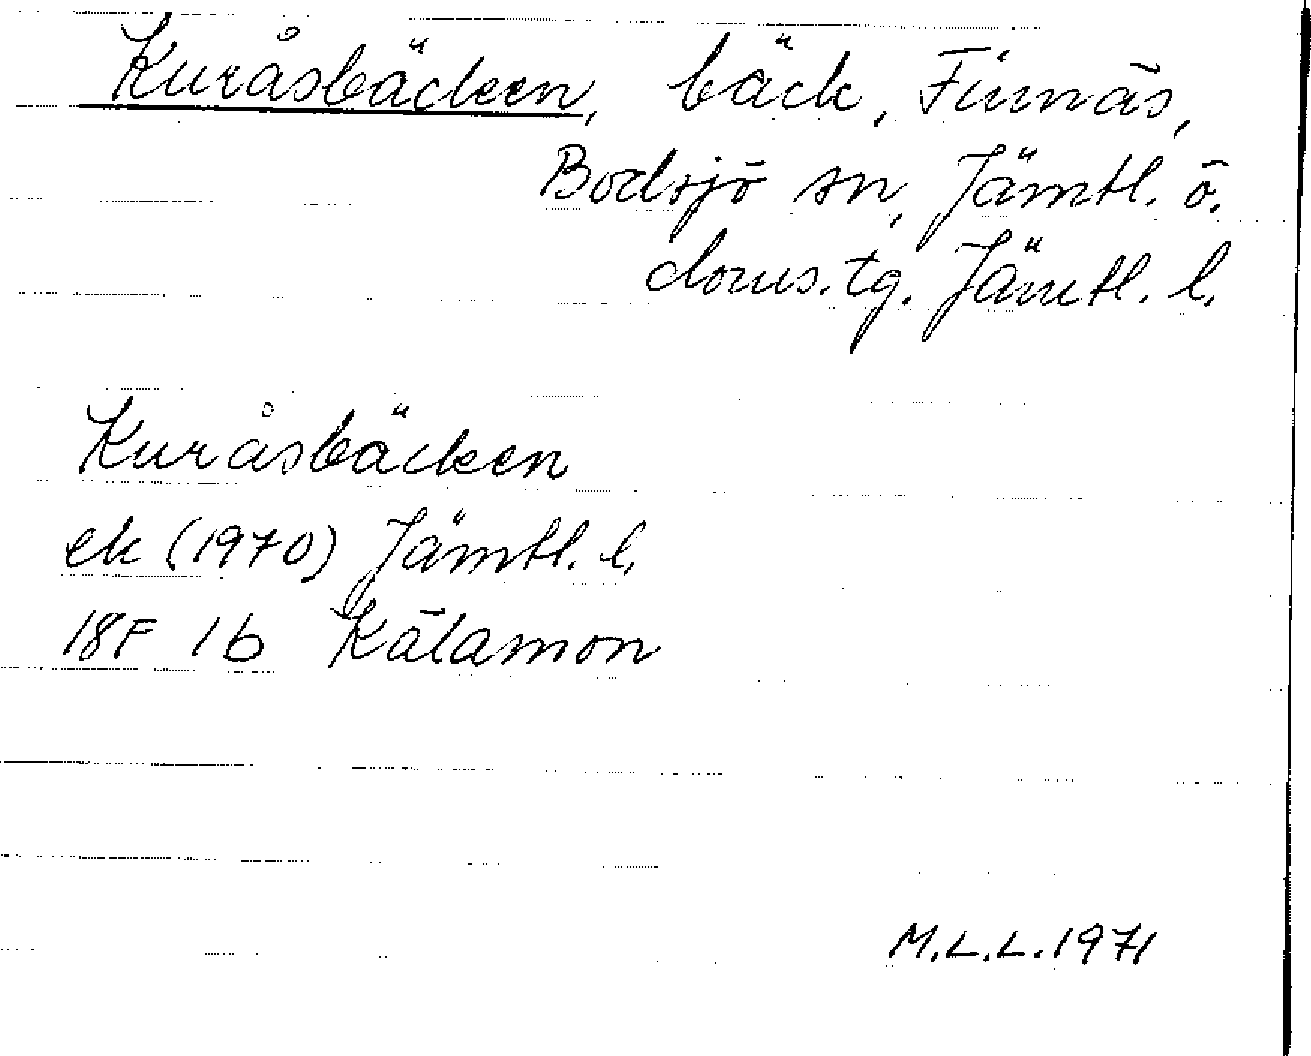 Kuråsbäcken, bäck, Finnäs,
Bodsjö sn, Jämtl. ö.
doms.tg. Jämtl. l.
Kuråsbäcken
ek (1970) Jämtl. l.
18F 1b Kälamon
M.L.L.1971